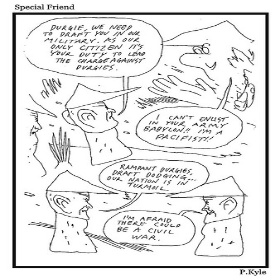 Special Friend
DURGIE, WE NEED
TO DRAFT YOU IN OUR
MILITARY. AS OUR
ONLY CITIZEN IT'S
YOUR DUTY TO LEAD
THE CHARGE AGAINST
DURGIES.
I CAN'T ENLIST
IN YOUR ARMY
BABYLON!! I'M A
PACIFIST!!
RAMPANT DURGIES,
DRAFT DODGING...
OUR NATION IS IN
TURMOIL.
I'M AFRAID
THERE COULD
BE A CIVIL
WAR.
P.Kyle